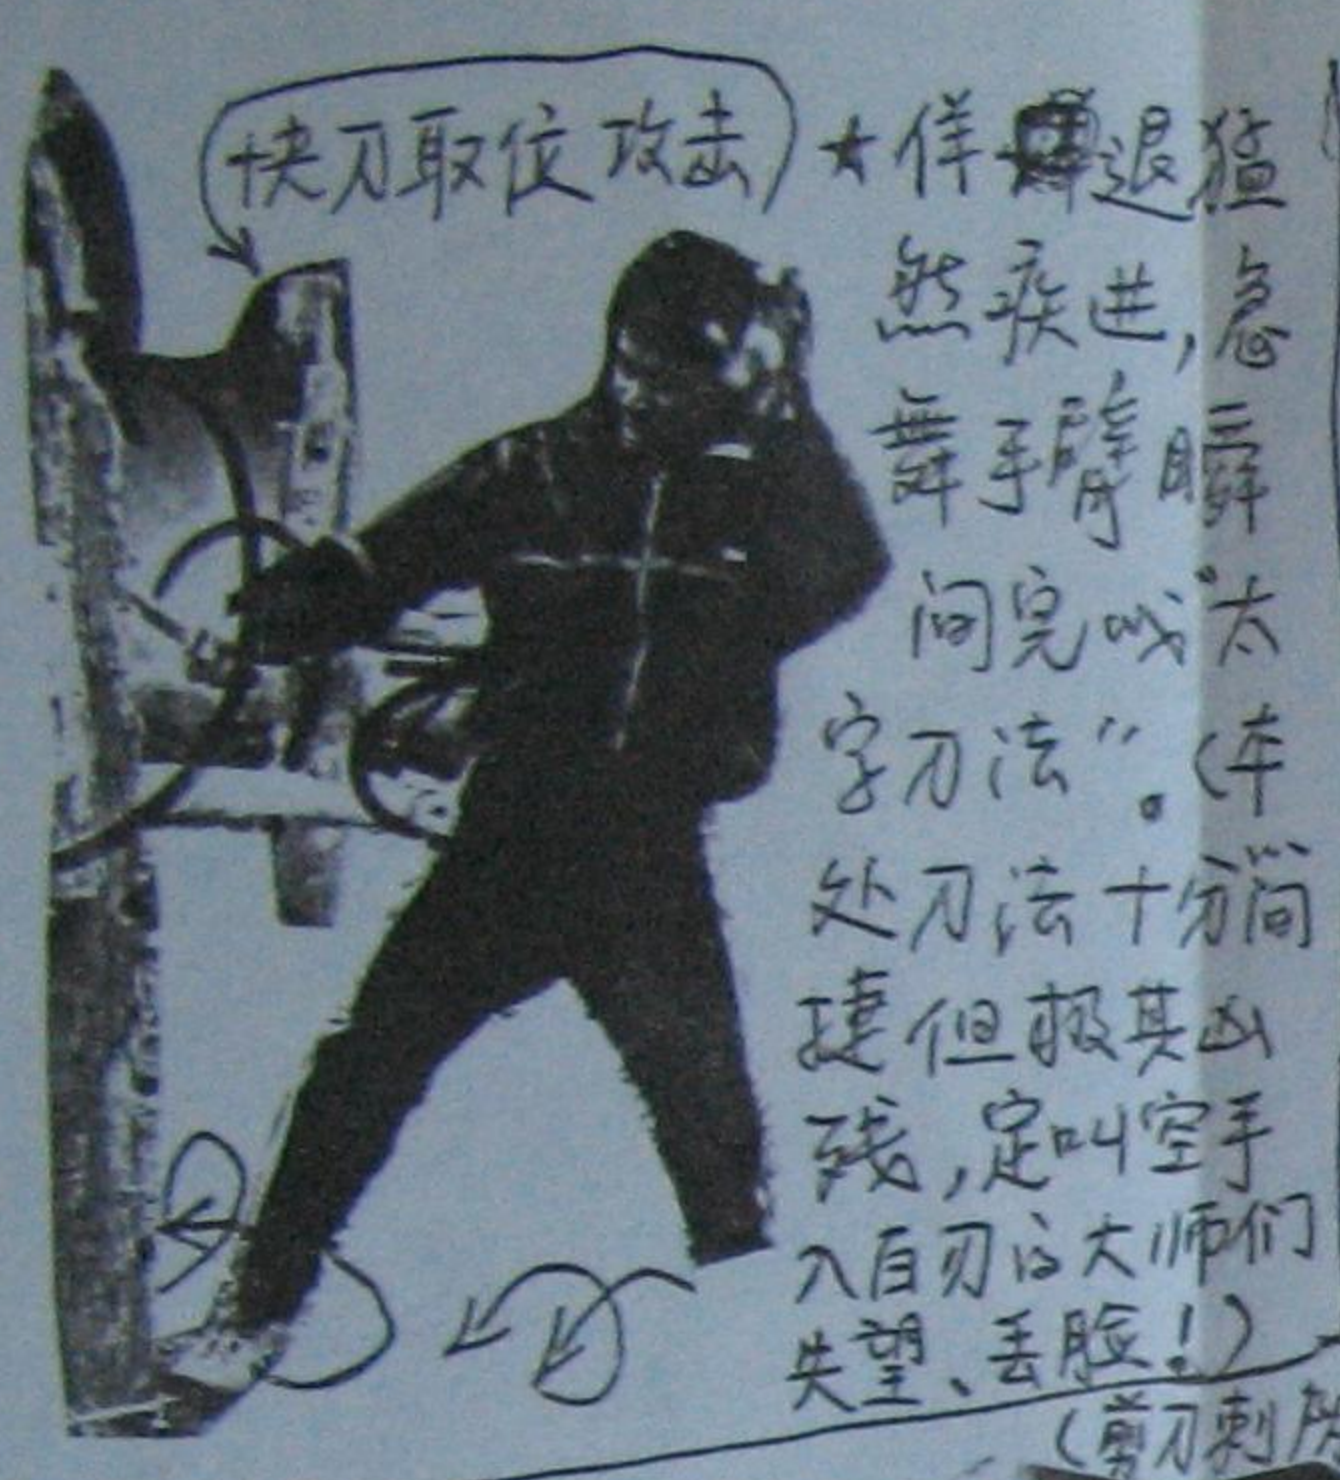 快刀取位攻击
★佯退猛
然疾进,急
舞手臂瞬
间完成“六
字刀法”。(本
处刀法十分简
捷但极其凶
残,定叫空手
入白刃的大师们
失望、丢脸!)
(剪刀刺